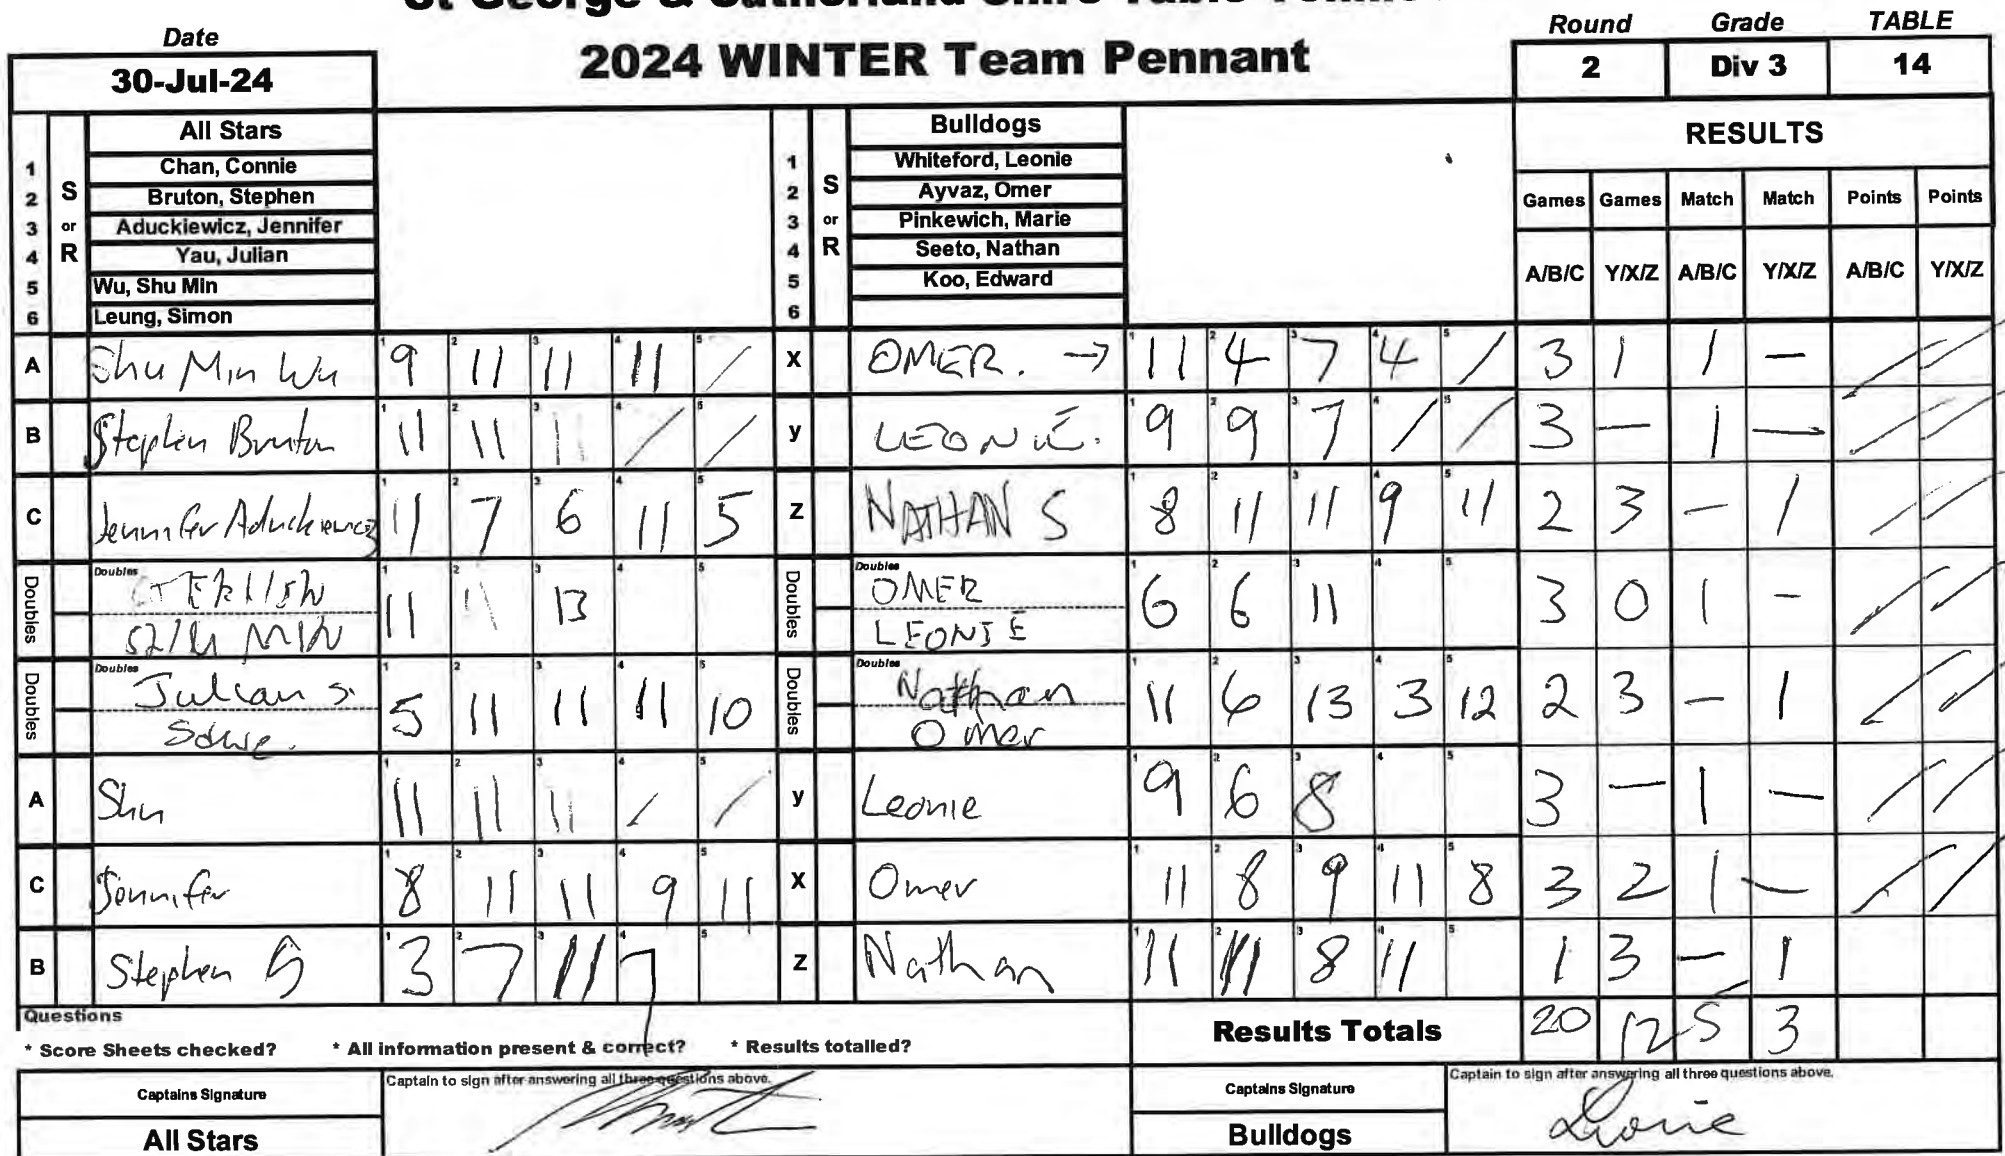 2024 WINTER Team Pennant
Date
30-Jul-24
Round Grade TABLE
2 Div 3 14
All Stars
Bulldogs
RESULTS
1 Chan, Connie
2 Bruton, Stephen
3 Aduckiewicz, Jennifer
4 Yau, Julian
5 Wu, Shu Min
6 Leung, Simon
S or R
1 Whiteford, Leonie
2 Ayvaz, Omer
3 Pinkewich, Marie
4 Seeto, Nathan
5 Koo, Edward
6
S or R
Games Games Match Match Points Points
A/B/C Y/X/Z A/B/C Y/X/Z A/B/C Y/X/Z
A Shu Min Wu 9 11 11 11 / X OMER. → 11 4 7 4 / 3 1 1 —
B Stephen Bruton 11 11 11 / / y LEONIE. 9 9 7 / / 3 — 1 —
C Jennifer Aduckiewicz 11 7 6 11 5 Z NATHAN S 8 11 11 9 11 2 3 — 1
Doubles Doubles 11 11 13 Doubles Doubles OMER 6 6 11 3 0 1 -
MIN LEONIE
Doubles Doubles Julian 5 11 11 11 10 Doubles Doubles Nathan 11 6 13 3 12 2 3 — 1
Omer
A Shu 11 11 11 / / y Leonie 9 6 8 3 — 1 —
C Jennifer 8 11 11 9 11 X Omer 11 8 9 11 8 3 2 1 —
B Stephen B 3 7 11 7 Z Nathan 11 11 8 11 1 3 — 1
Questions
* Score Sheets checked? * All information present & correct? * Results totalled?
Results Totals 20 12 5 3
Captains Signature
Captain to sign after answering all three questions above.
All Stars
Captains Signature
Captain to sign after answering all three questions above.
Bulldogs
Leonie